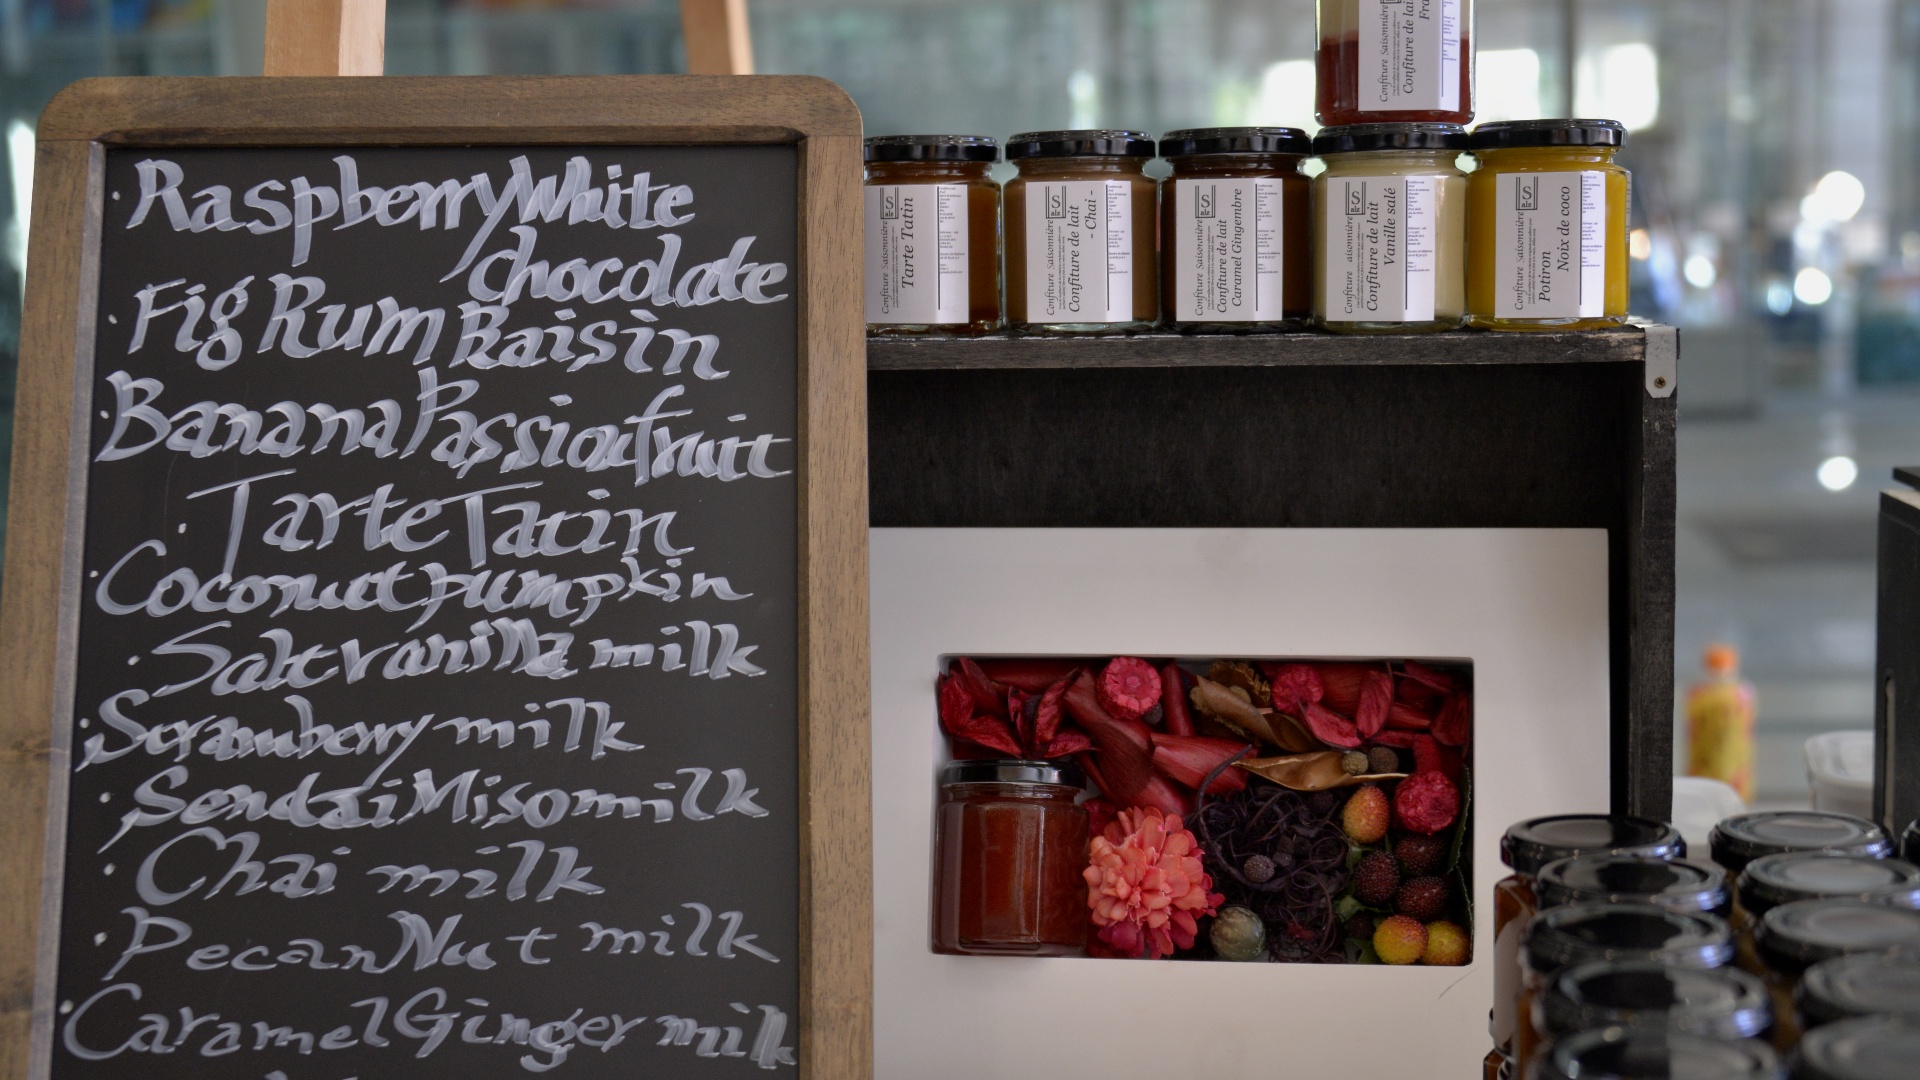 · Raspberry White
chocolate
· Fig Rum Raisin
· Banana Passionfruit
· Tarte Tatin
· Coconut pumpkin
· Salt vanilla milk
· Strawberry milk
· Sendai Miso milk
· Chai milk
· Pecan Nut milk
· Caramel Ginger milk
Confiture Saisonnière
Confiture de lait
Fra
S
ale
Confiture Saisonnière
Tarte Tatin
S
ale
Confiture Saisonnière
Confiture de lait
- Chai -
S
ale
Confiture Saisonnière
Confiture de lait
Caramel Gingembre
S
ale
Confiture Saisonnière
Confiture de lait
Vanille salé
S
ale
Confiture Saisonnière
Potiron
Noix de coco